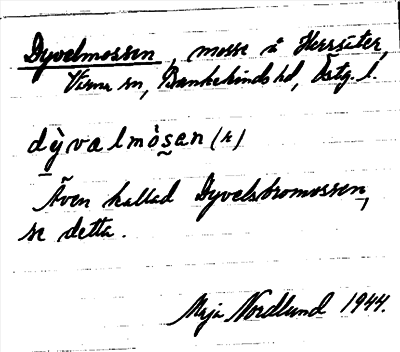 Dyvelmossen, mosse å Herrsäter,
Värna sn, Bankekinds hd, Östg. l.
dỳvalmòsan (r)
Även kallad Dyvelsbromossen,
se detta.
Maja Nordlund 1944.